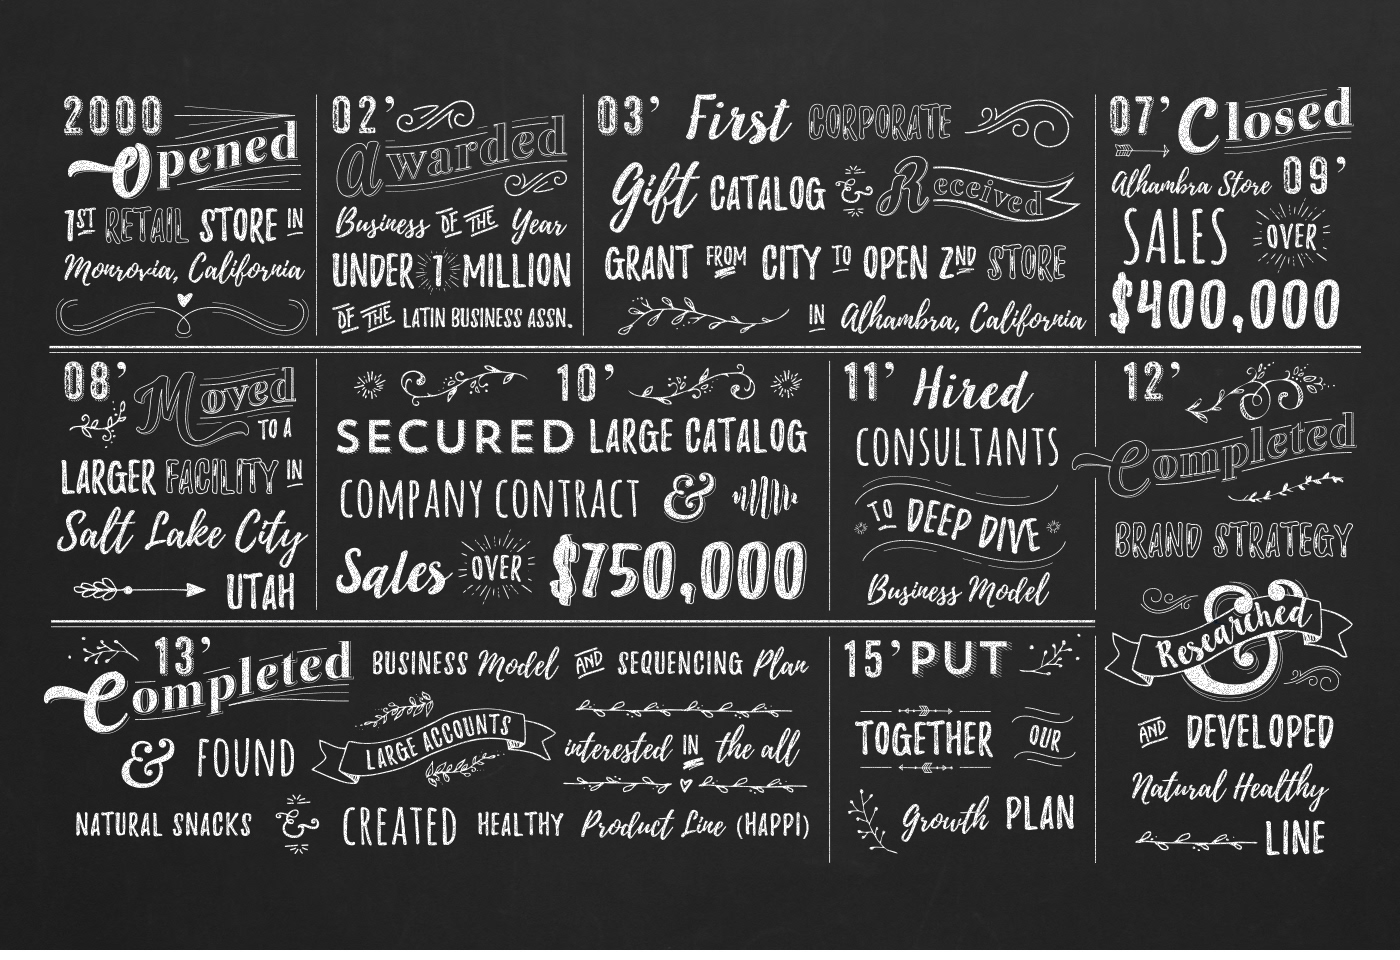 2000
Opened
1ST RETAIL STORE IN
Monrovia, California
02'
Awarded
Business OF THE Year
UNDER 1 MILLION
OF THE LATIN BUSINESS ASSN.
03' First CORPORATE
Gift CATALOG & Received
GRANT FROM CITY TO OPEN 2ND STORE
IN Alhambra, California
07' Closed
Alhambra Store 09'
SALES OVER
$400,000
08' Moved
TO A
LARGER FACILITY IN
Salt Lake City
UTAH
10'
SECURED LARGE CATALOG
COMPANY CONTRACT &
Sales OVER $750,000
11' Hired
CONSULTANTS
TO DEEP DIVE
Business Model
12'
Completed
BRAND STRATEGY
&
Researched
AND DEVELOPED
Natural Healthy
LINE
13'
Completed BUSINESS Model AND SEQUENCING Plan
& FOUND LARGE ACCOUNTS interested IN the all
NATURAL SNACKS & CREATED HEALTHY Product Line (HAPPI)
15' PUT
TOGETHER OUR
Growth PLAN